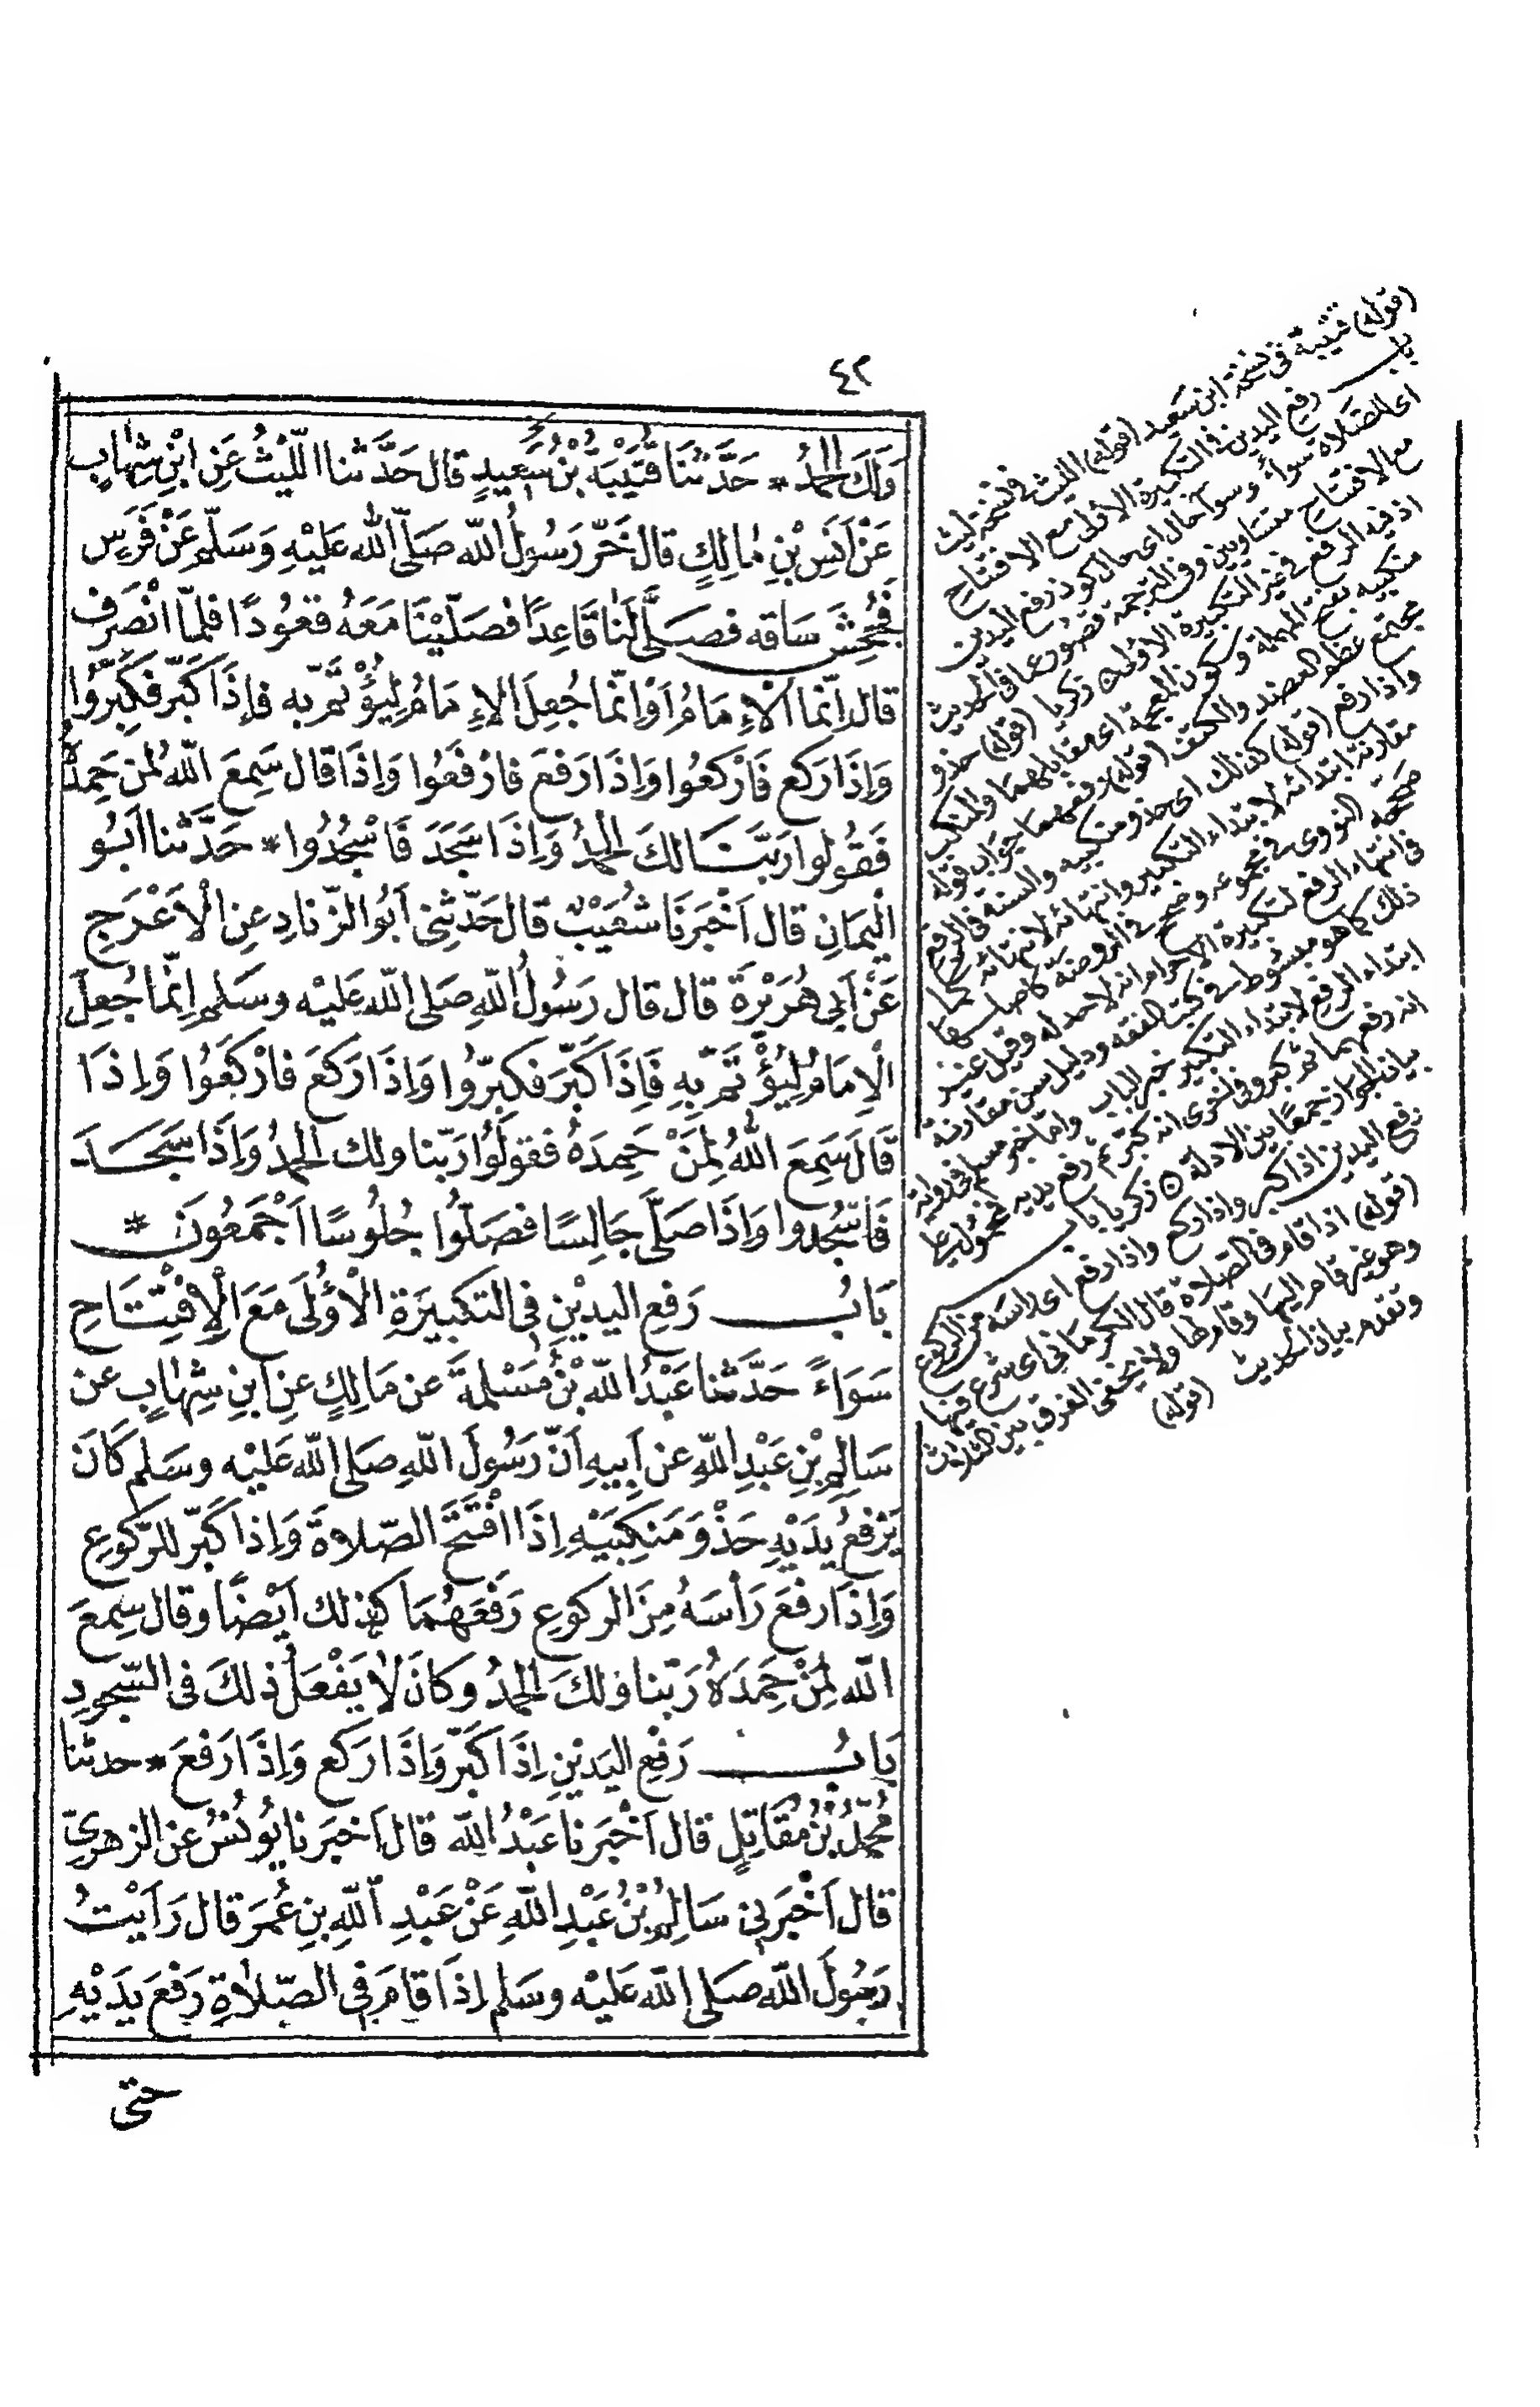 ٤٢
وَلَكَ الحمدُ * حَدَّثَنَا قُتَيْبَةُ بْنُ سَعِيدٍ قال حَدَّثنا اللّيْثُ عَنِ ابْنِ شِهَابٍ
عَنْ اَنَسِ بْنِ مَالِكٍ قال خَرّ رَسُولُ اللّه صَلّى اللّه عَلَيْهِ وَسَلّم عَنْ فَرَسٍ
فَجُحِشَ سَاقه فصَلَّى لَنَا قَاعِدًا فَصَلّيْنَا مَعَهُ قعُودًا فلمّا انْصَرَف
قال اِنّما الْاِمَامُ اَوْ اِنّما جُعِلَ الْاِمَامُ لِيُؤْتمّ به فاِذَا كَبّر فكَبِّرُوا
وَاِذَا رَكع فَارْكَعُوا وَاِذَا رَفعَ فارْفعُوا وَاِذَا قال سَمِعَ اللّهُ لمن حَمِدهُ
فَقُولوا رَبَّنَا لكَ الحمدُ وَاِذَا سَجَدَ فَاسْجُدُوا * حَدَّثنا اَبُو
الْيمَانِ قال اَخْبَرَنَا شُعَيْبٌ قال حَدّثنِى اَبُو الزّنادِ عِن الْاَعْرَجِ
عَنْ اَبِى هُرَيْرةَ قال قال رَسُولُ اللّهِ صَلى اللّه عَليْه وسَلم اِنّما جُعِلَ
الْاِمَامُ لِيُؤْتَمّ بِهِ فَاِذَا كَبّرَ فكبّرُوا وَاِذَا رَكَعَ فارْكَعُوا وَاِذَا
قَالَ سَمِعَ اللّهُ لِمَنْ حَمِدَهُ فقولُوا رَبّنا ولك الحمدُ وَاِذَا سَجَدَ
فَاسْجُدوا وَاِذَا صَلّى جَالِسًا فصَلّوا جُلُوسًا اَجْمَعُونَ *
بَابُ رَفعِ اليديْنِ فِى التكبيرَةِ الْاُولَى مَعَ الْاِفْتِتَاحِ
سَوَاءً حَدَّثنا عَبْدُ اللّه بْنُ مَسْلمةَ عن مَالِكٍ عنِ ابنِ شِهَابٍ عن
سَالِمِ بْنِ عَبْدِ اللّهِ عن اَبِيهِ اَنّ رَسُولَ اللّهِ صَلى اللّه عَلَيْه وسَلم كَانَ
يَرْفعُ يدَيْهِ حَذْوَ مَنكِبَيْهِ اِذَا افْتَتَحَ الصّلاةَ وَاِذا كَبّر للرّكوعِ
وَاِذَا رَفعَ رَأسَهُ مِنَ الركوعِ رَفعَهُمَا كذلك اَيْضًا وقال سَمِعَ
اللّه لِمَنْ حَمِدَهُ رَبّنا ولكَ الحمدُ وَكانَ لا يَفْعَلُ ذلكَ فى السّجودِ
بَابُ رَفعِ اليَديْنِ اِذَا كَبّر وَاِذَا رَكع وَاِذَا رَفعَ * حدثنا
مُحمّدُ بْنُ مُقَاتِلٍ قال اَخْبَرنا عَبْدُ اللّه قال اَخبَرنا يُونُسُ عن الزهرىّ
قال اَخْبَرنِى سَالِمُ بْنُ عَبْدِ اللّهِ عَنْ عَبْدِ اللّهِ بنِ عُمَرَ قال رَاَيْتُ
رَسُولَ اللّه صَلى اللّه عَليْه وسَلم اِذَا قامَ فِى الصّلاةِ رَفعَ يَدَيْهِ
حتى
(قوله) قتيبة فى نسخة ابن سَعيد (قوله) الليث فى نسخة ليث
باب رفع اليدين فى التكبيرة الاولى مع الافتتاح
اى الصّلاة سَواءً وسوا حال اى حال كون رفع اليدين
مع الافتتاح متساويين وفى الترجمة قصور عما فى الحديث
اذ فيه الرفع فى غير التكبيرة الاولى ه زكريا (قوله) حذو
منكبيه بفتح المهملة وسكون المعجمة اى مقابلهما والمنكب
مجتمع عظم العضد والكتف (قوله) رفعهما جواب قوله
واذا رفع (قوله) كذلك اى حذو منكبيه والسنة فى الرفع
مقارنة ابتدائه لابتداء التكبير وانتهائه لانتهائه كما
صححه النووى فى مجموعه وصحح فى الروضة كاصلها
فى انتهاء الرفع لتكبيرة الاحرام انه لا حد له وقيل غير
ذلك كما هو مبسوط فى كتب الفقه ودليل سن مقارنة
ابتداء الرفع لابتداء التكبير خبر الباب واما خبر مسلم فى رواية
انه رفعهما ثم كبر وفى اخرى انه كبر ثم رفع يديه فمحمول عليها
بيان للجواز جمعا بين الادلة ه زكريا باب
رفع اليدين اذا كبر واذا ركع واذا رفع اى راسه من الركوع
(قوله) اذا قام فى الصلاة قال الكرمانى اى شرع فيها
وهو غير قام اليها وقام لها ولا يخفى الفرق بين الثلاث
وتقدم بيان الحديث (قوله)